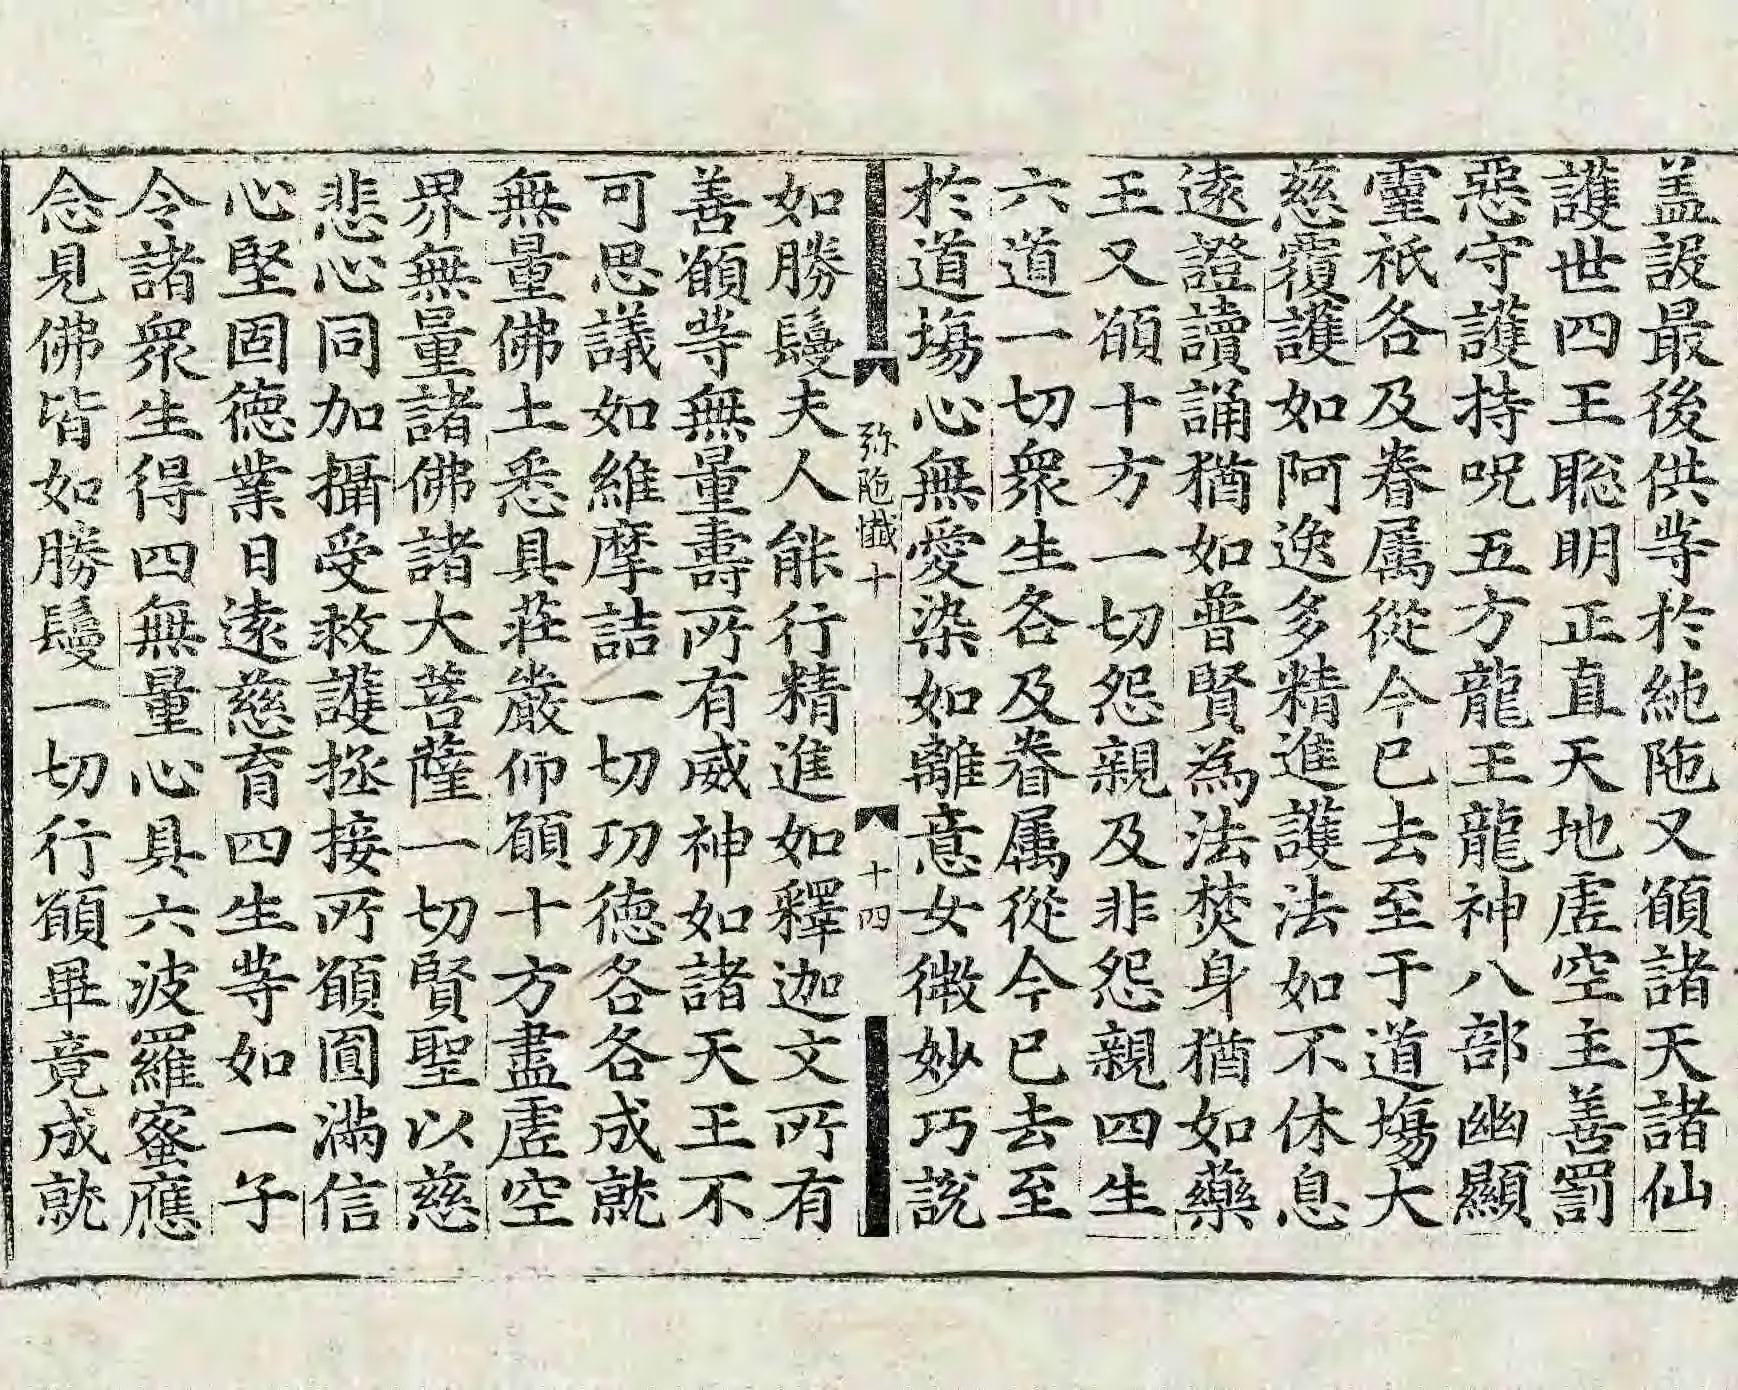 盖設最後供等於純陁又願諸天諸仙
護世四王聡明正直天地虗空主善罰
惡守護持呪五方龍王龍神八部幽顯
靈祇各及眷属從今已去至于道塲大
慈覆護如阿逸多精進護法如不休息
遠證讀誦猶如普賢為法焚身猶如藥
王又願十方一切怨親及非怨親四生
六道一切衆生各及眷属從今已去至
於道塲心無愛染如離意女微妙巧說
弥陁懺十
十四
如勝鬘夫人能行精進如釋迦文所有
善願等無量壽所有威神如諸天王不
可思議如維摩詰一切功德各各成就
無量佛土悉具莊嚴仰願十方盡虗空
界無量諸佛諸大菩薩一切賢聖以慈
悲心同加攝受救護拯接所願圓滿信
心堅固德業日遠慈育四生等如一子
令諸衆生得四無量心具六波羅蜜應
念見佛皆如勝鬘一切行願畢竟成就